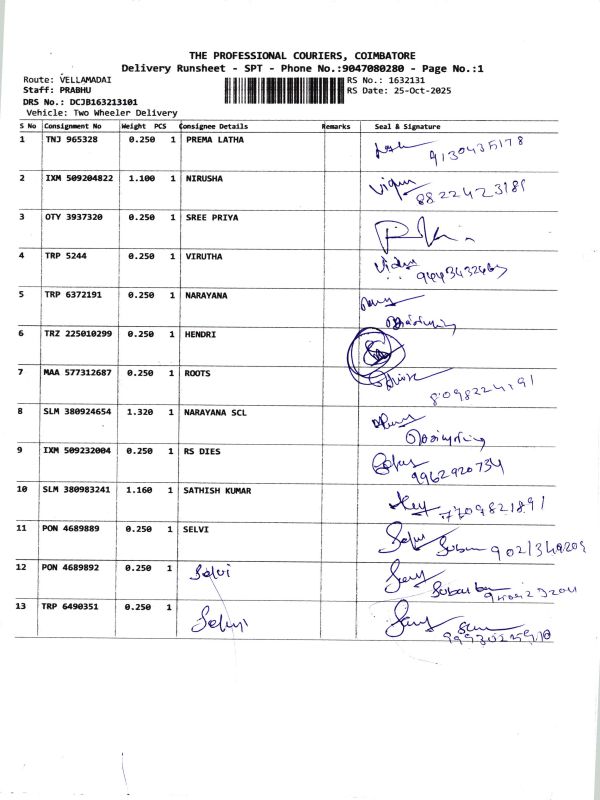 THE PROFESSIONAL COURIERS, COIMBATORE
Delivery Runsheet - SPT - Phone No.:9047080280 - Page No.:1
Route: VELLAMADAI RS No.: 1632131
Staff: PRABHU RS Date: 25-Oct-2025
DRS No.: DCJB163213101
Vehicle: Two Wheeler Delivery
S No Consignment No Weight PCS Consignee Details Remarks Seal & Signature
1 TNJ 965328 0.250 1 PREMA LATHA
9130435178
2 IXM 509204822 1.100 1 NIRUSHA
8822423181
3 OTY 3937320 0.250 1 SREE PRIYA
4 TRP 5244 0.250 1 VIRUTHA
5 TRP 6372191 0.250 1 NARAYANA
6 TRZ 225010299 0.250 1 HENDRI
7 MAA 577312687 0.250 1 ROOTS
8098224191
8 SLM 380924654 1.320 1 NARAYANA SCL
9 IXM 509232004 0.250 1 RS DIES
9962920734
10 SLM 380983241 1.160 1 SATHISH KUMAR
7709821891
11 PON 4689889 0.250 1 SELVI Selvi
12 PON 4689892 0.250 1 Selvi
13 TRP 6490351 0.250 1 Selvi